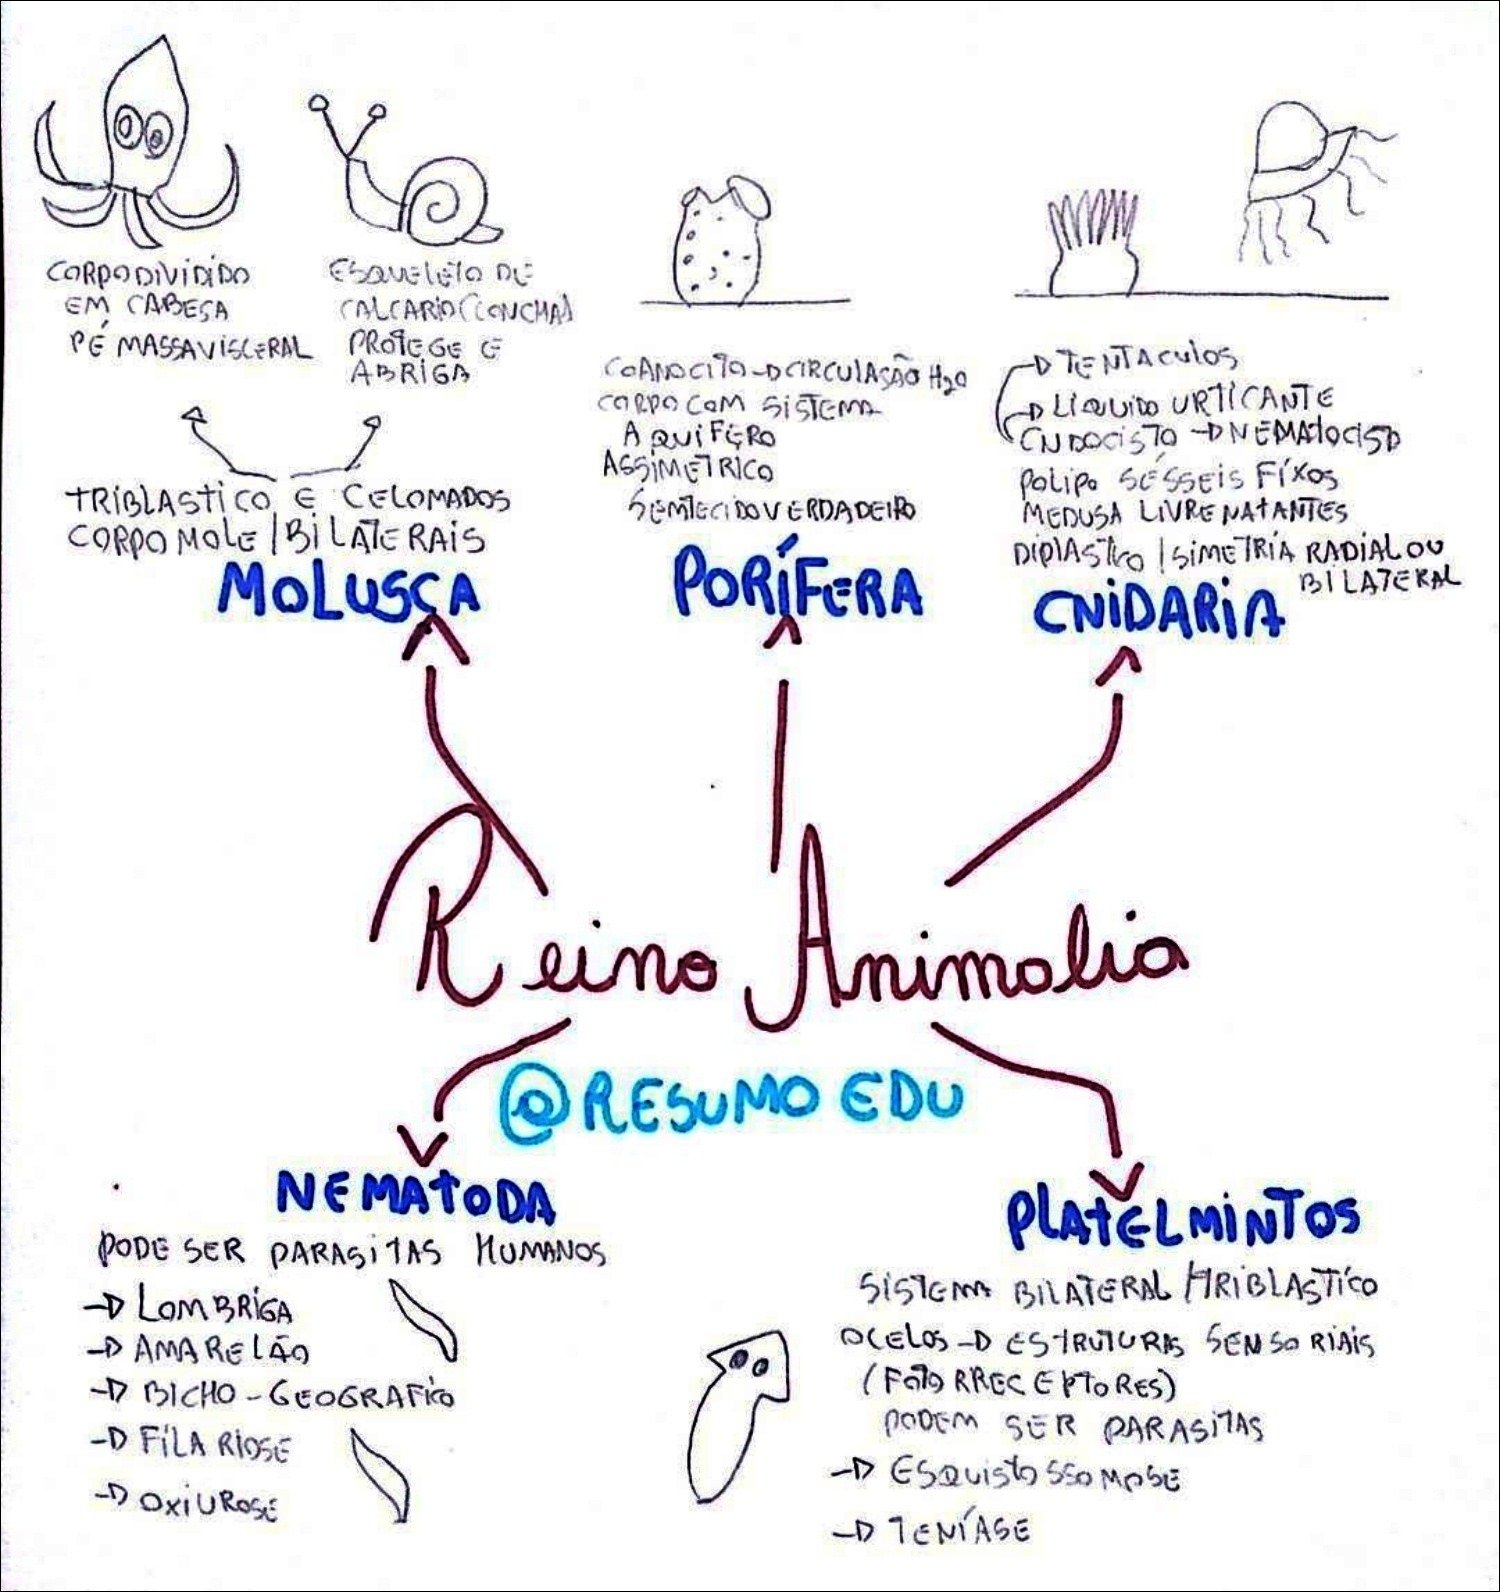 CORPO DIVIDIDO
EM CABEÇA
PÉ MASSA VISCERAL
ESQUELETO DE
CALCARIO (CONCHA)
PROTEGE E
ABRIGA
TRIBLASTICO E CELOMADOS
CORPO MOLE / BILATERAIS
MOLUSCA
COANOCITO → CIRCULAÇÃO H2O
CORPO COM SISTEMA
AQUÍFERO
ASSÍMETRICO
SEM TECIDO VERDADEIRO
PORÍFERA
→ TENTACULOS
→ LÍQUIDO URTICANTE
CNDOCISTO → NEMATOCISD
POLIPO SÉSSEIS FÍXOS
MEDUSA LIVRE NATANTES
DIPLASTICO / SIMETRÍA RADIAL OU
BILATERAL
CNIDARIA
Reino Animalia
@RESUMO EDU
NEMATODA
PODE SER PARASITAS HUMANOS
→ LOMBRIGA
→ AMARELÃO
→ BICHO-GEOGRAFICO
→ FILARIOSE
→ OXIUROSE
PLATELMINTOS
SISTEMA BILATERAL / TRIBLASTÍCO
OCELOS → ESTRUTURAS SENSORIAIS
(FOTORRECEPTORES)
PODEM SER PARASITAS
→ ESQUISTOSSOMOSE
→ TENÍASE